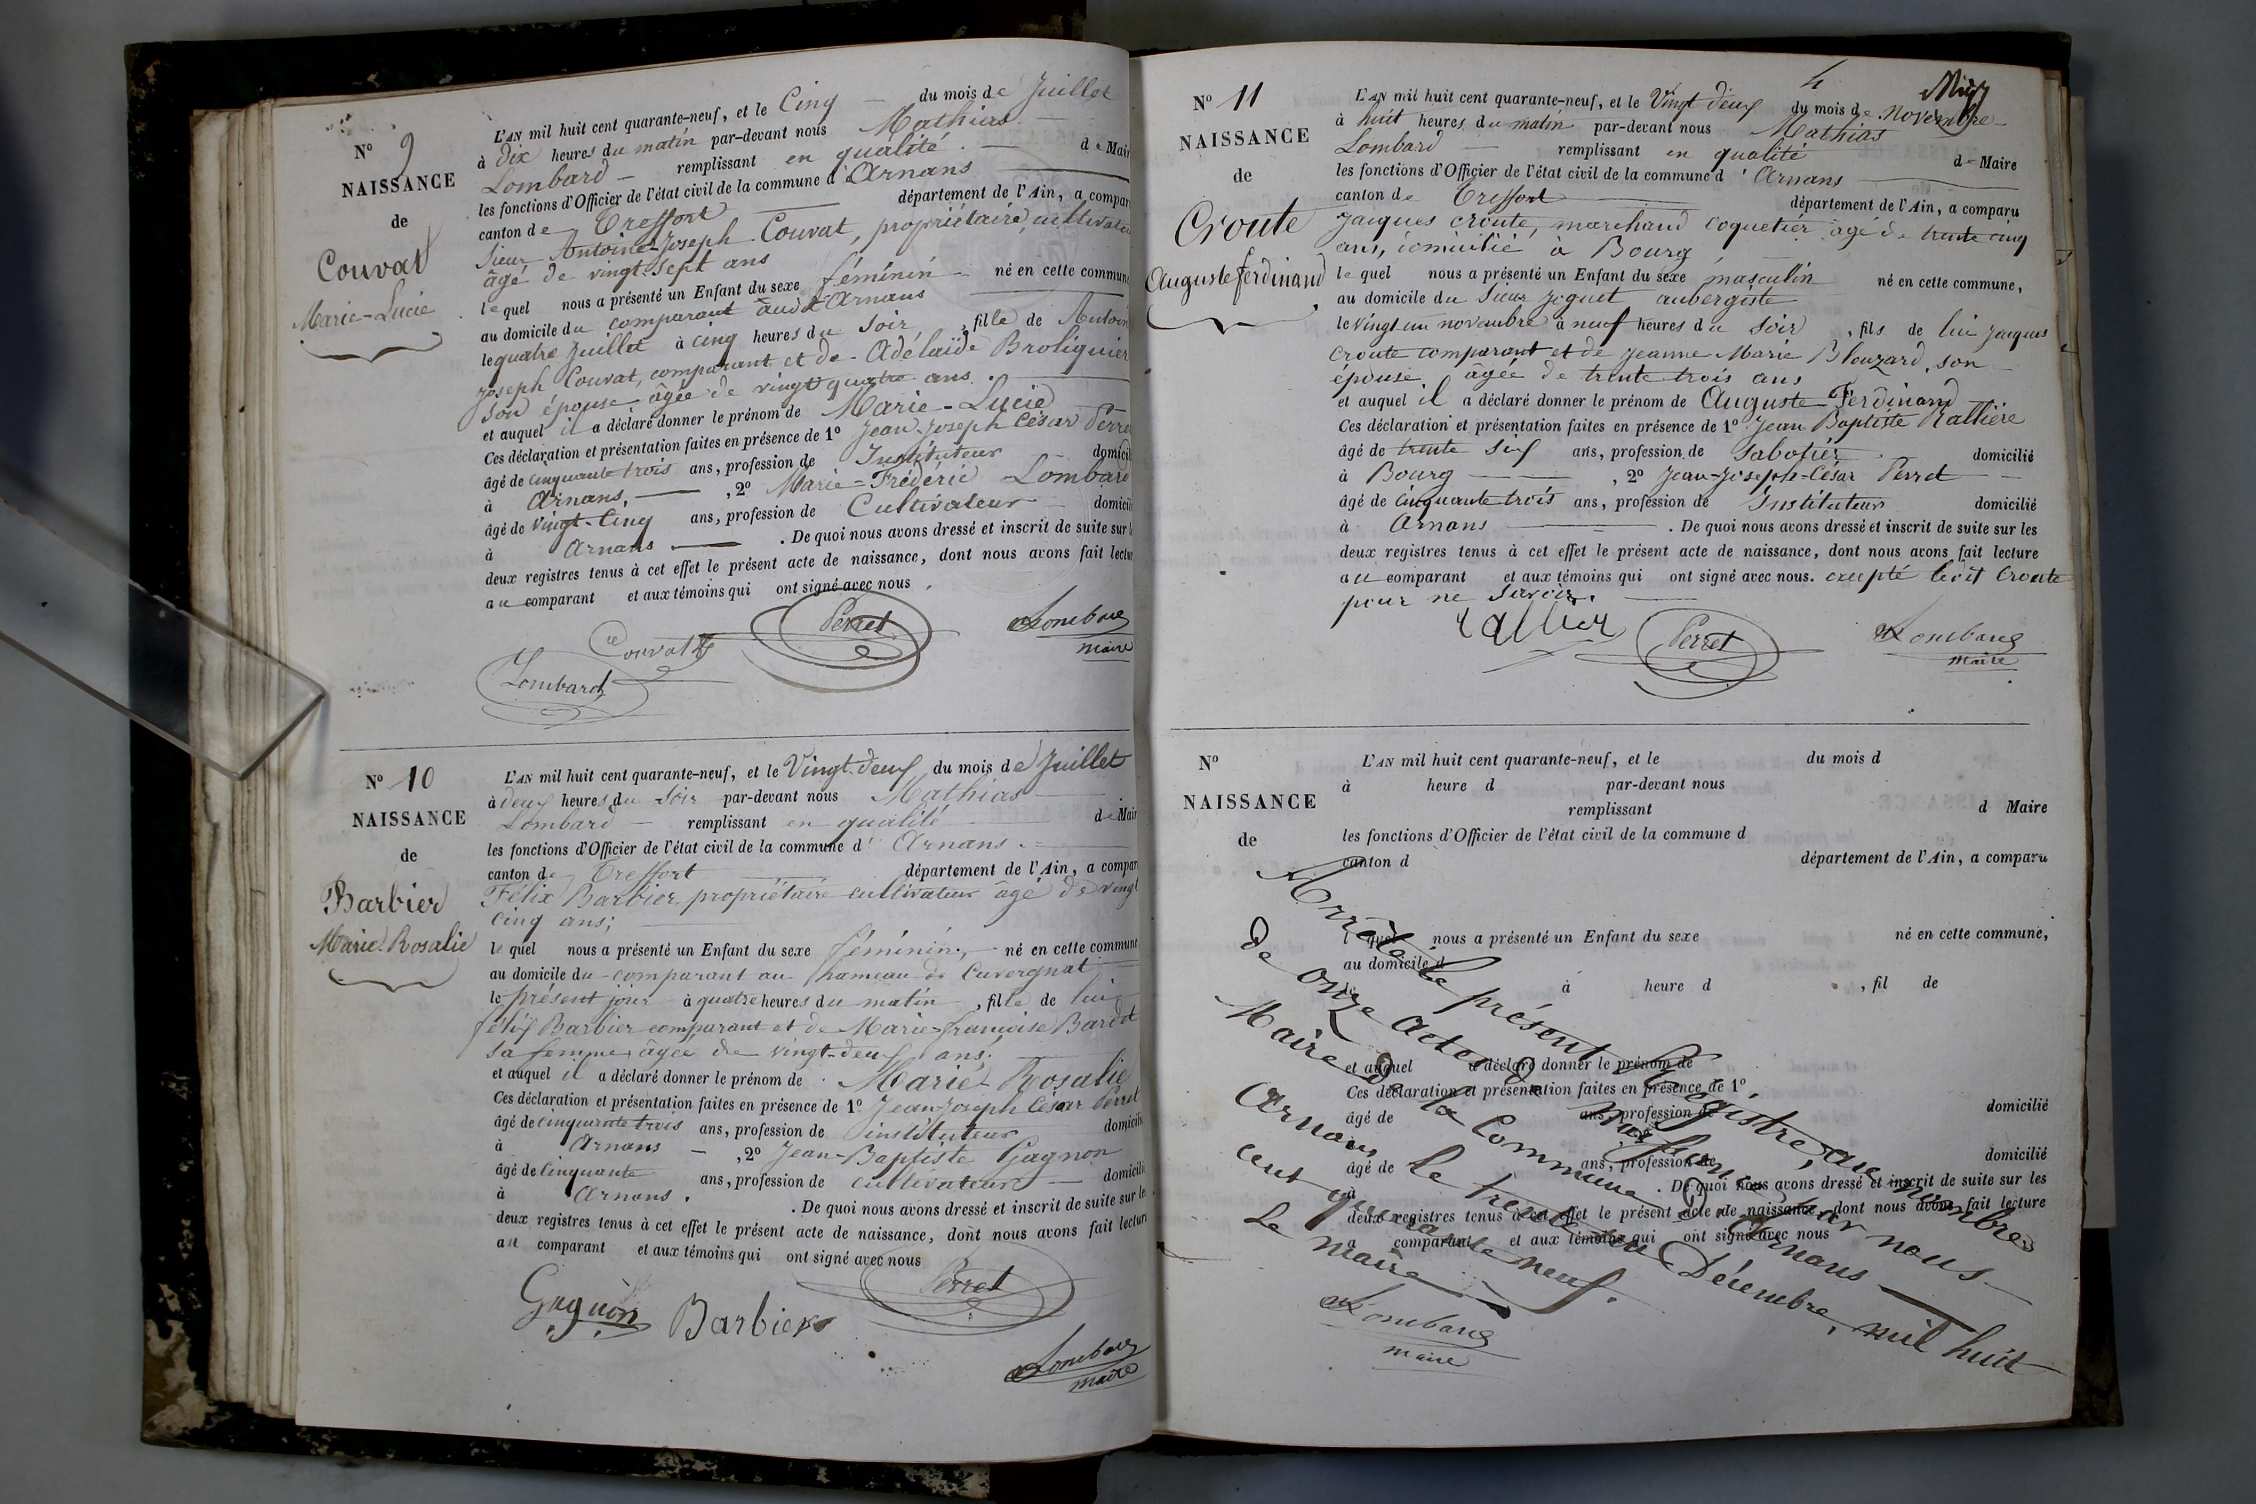 N° 9
NAISSANCE
de
Couvat
Marie-Lucie
L'AN mil huit cent quarante-neuf, et le Cinq du mois de Juillet
à dix heures du matin par-devant nous Mathias
Lombard remplissant en qualité de Mair
les fonctions d'Officier de l'état civil de la commune d'Arnans
canton de Treffort département de l'Ain, a compar
Sieur Antoine-Joseph Couvat, propriétaire, cultivateu
âgé de vingt-sept ans
lequel nous a présenté un Enfant du sexe féminin né en cette commun
au domicile du comparant audt Arnans
le quatre Juillet à cinq heures du soir, fille de Antoin
Joseph Couvat, comparant et de Adélaïde Broliquier
son épouse âgée de vingt quatre ans.
et auquel il a déclaré donner le prénom de Marie-Lucie
Ces déclaration et présentation faites en présence de 1° Jean-Joseph César Perre
âgé de cinquante trois ans, profession de Instituteur domicil
à Arnans, 2° Marie-Frédéric Lombard
âgé de vingt-cinq ans, profession de Cultivateur domicili
à Arnans. De quoi nous avons dressé et inscrit de suite sur l
deux registres tenus à cet effet le présent acte de naissance, dont nous avons fait lectur
au comparant et aux témoins qui ont signé avec nous.
Couvat Perret Lombard
maire
Lombard
N° 10
NAISSANCE
de
Barbier
Marie-Rosalie
L'AN mil huit cent quarante-neuf, et le Vingt-deux du mois de Juillet
à deux heures du soir par-devant nous Mathias
Lombard remplissant en qualité de Mair
les fonctions d'Officier de l'état civil de la commune d'Arnans
canton de Treffort département de l'Ain, a compar
Félix Barbier, propriétaire cultivateur âgé de vingt
cinq ans;
lequel nous a présenté un Enfant du sexe féminin, né en cette commune
au domicile du comparant au hameau de Cuvergnat
le présent jour à quatre heures du matin, fille de lui
félix Barbier comparant et de Marie-françoise Bardot
sa femme, âgée de vingt-deux ans.
et auquel il a déclaré donner le prénom de Marie-Rosalie
Ces déclaration et présentation faites en présence de 1° Jean-Joseph César Perret
âgé de cinquante trois ans, profession de instituteur domicili
à Arnans, 2° Jean-Baptiste Gagnon
âgé de cinquante ans, profession de cultivateur domicili
à Arnans. De quoi nous avons dressé et inscrit de suite sur le
deux registres tenus à cet effet le présent acte de naissance, dont nous avons fait lectur
au comparant et aux témoins qui ont signé avec nous
Gagnon Barbier Perret
Lombard
maire
4
N° 11
NAISSANCE
de
Croute
Auguste ferdinand
L'AN mil huit cent quarante-neuf, et le Vingt deux du mois de Novembre
à huit heures du matin par-devant nous Mathias
Lombard remplissant en qualité de Maire
les fonctions d'Officier de l'état civil de la commune d'Arnans
canton de Treffort département de l'Ain, a comparu
Jacques croute, marchand coquetier âgé de trente cinq
ans, domicilié à Bourg
lequel nous a présenté un Enfant du sexe masculin né en cette commune,
au domicile du Sieur Joguet, aubergiste
le vingt un novembre à neuf heures du soir, fils de lui Jacques
croute comparant et de Jeanne Marie Blouzard, son
épouse, âgée de trente trois ans
et auquel il a déclaré donner le prénom de Auguste Ferdinand
Ces déclaration et présentation faites en présence de 1° Jean Baptiste Rallière
âgé de trente six ans, profession de Sabotier domicilié
à Bourg, 2° Jean-Joseph-César Perret
âgé de cinquante trois ans, profession de Instituteur domicilié
à Arnans. De quoi nous avons dressé et inscrit de suite sur les
deux registres tenus à cet effet le présent acte de naissance, dont nous avons fait lecture
au comparant et aux témoins qui ont signé avec nous. excepté ledit Croute
pour ne savoir.
Perret Lombard
maire
N°
NAISSANCE
de
L'AN mil huit cent quarante-neuf, et le du mois d
à heure d par-devant nous
remplissant d Maire
les fonctions d'Officier de l'état civil de la commune d
canton d département de l'Ain, a comparu
l quel nous a présenté un Enfant du sexe né en cette commune,
au domicile d
le à heure d , fil de
et auquel a déclaré donner le prénom de
Ces déclaration et présentation faites en présence de 1°
âgé de ans, profession de domicilié
âgé de ans, profession de domicilié
à . De quoi nous avons dressé et inscrit de suite sur les
deux registres tenus à cet effet le présent acte de naissance, dont nous avons fait lecture
a comparant et aux témoins qui ont signé avec nous
Arrêté le présent Registre, au nombre
de onze actes de Naissance par nous
Maire de la Commune d'Arnans
Arnans, le trente un Décembre, mil huit
cent quarante neuf.
Le maire
Lombard
maire